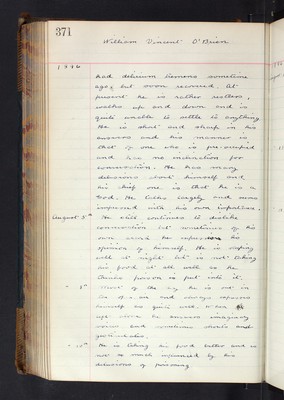 371
William Vincent O'Brien
1896
had delirium tremens sometime
ago, but soon recovered. At
present he is rather restless,
walks up and down and is
quite unable to settle to anything
He is short and sharp in his
answers and his manner is
that of one who is pre-occupied
and has no inclination for
conversation. He has many
delusions about himself and
his chief one is that he is a
God. He talks largely and more
impressed with his own importance.
August 5th He still continues to dislike
conversation but sometimes of his
own accord he
opinion of himself. He is sleeping
well at night but is not taking
his food at all well as he
thinks poison is put into it.
" 8th Most of the day he is out in
the and always
himself as quite well. To
night he answers imaginary
voices and sometimes shouts and
gesticulates.
" 10th He is taking his food better and is
not so much influenced by his
delusions of poisoning